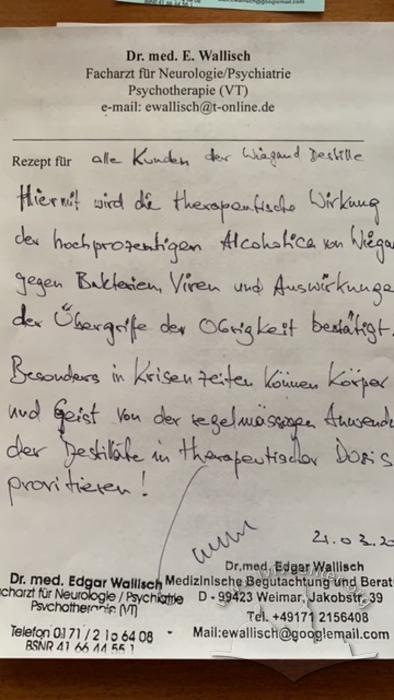 ewallisch@googlemail.com
Dr. med. E. Wallisch
Facharzt für Neurologie/Psychiatrie
Psychotherapie (VT)
e-mail: ewallisch@t-online.de
Rezept für alle Kunden der Wiegand Destille
Hiermit wird die therapeutische Wirkung
der hochprozentigen Alcoholica von Wiega
gegen Bakterien, Viren und Auswirkunge
der Übergriffe der Obrigkeit bestätigt.
Besonders in Krisenzeiten können Körper
und Geist von der regelmässigen Anwende
der Destillate in therapeutischer Dosis
provitieren!
21.03.20
Dr. med. Edgar Wallisch
charzt für Neurologie / Psychiatrie
Psychotherapie (VT)
Telefon 0171 / 2 15 64 08
BSNR 41 66 44 55 1
Dr.med. Edgar Wallisch
Medizinische Begutachtung und Berat
D - 99423 Weimar, Jakobstr. 39
Tel. +49171 2156408
Mail:ewallisch@googlemail.com